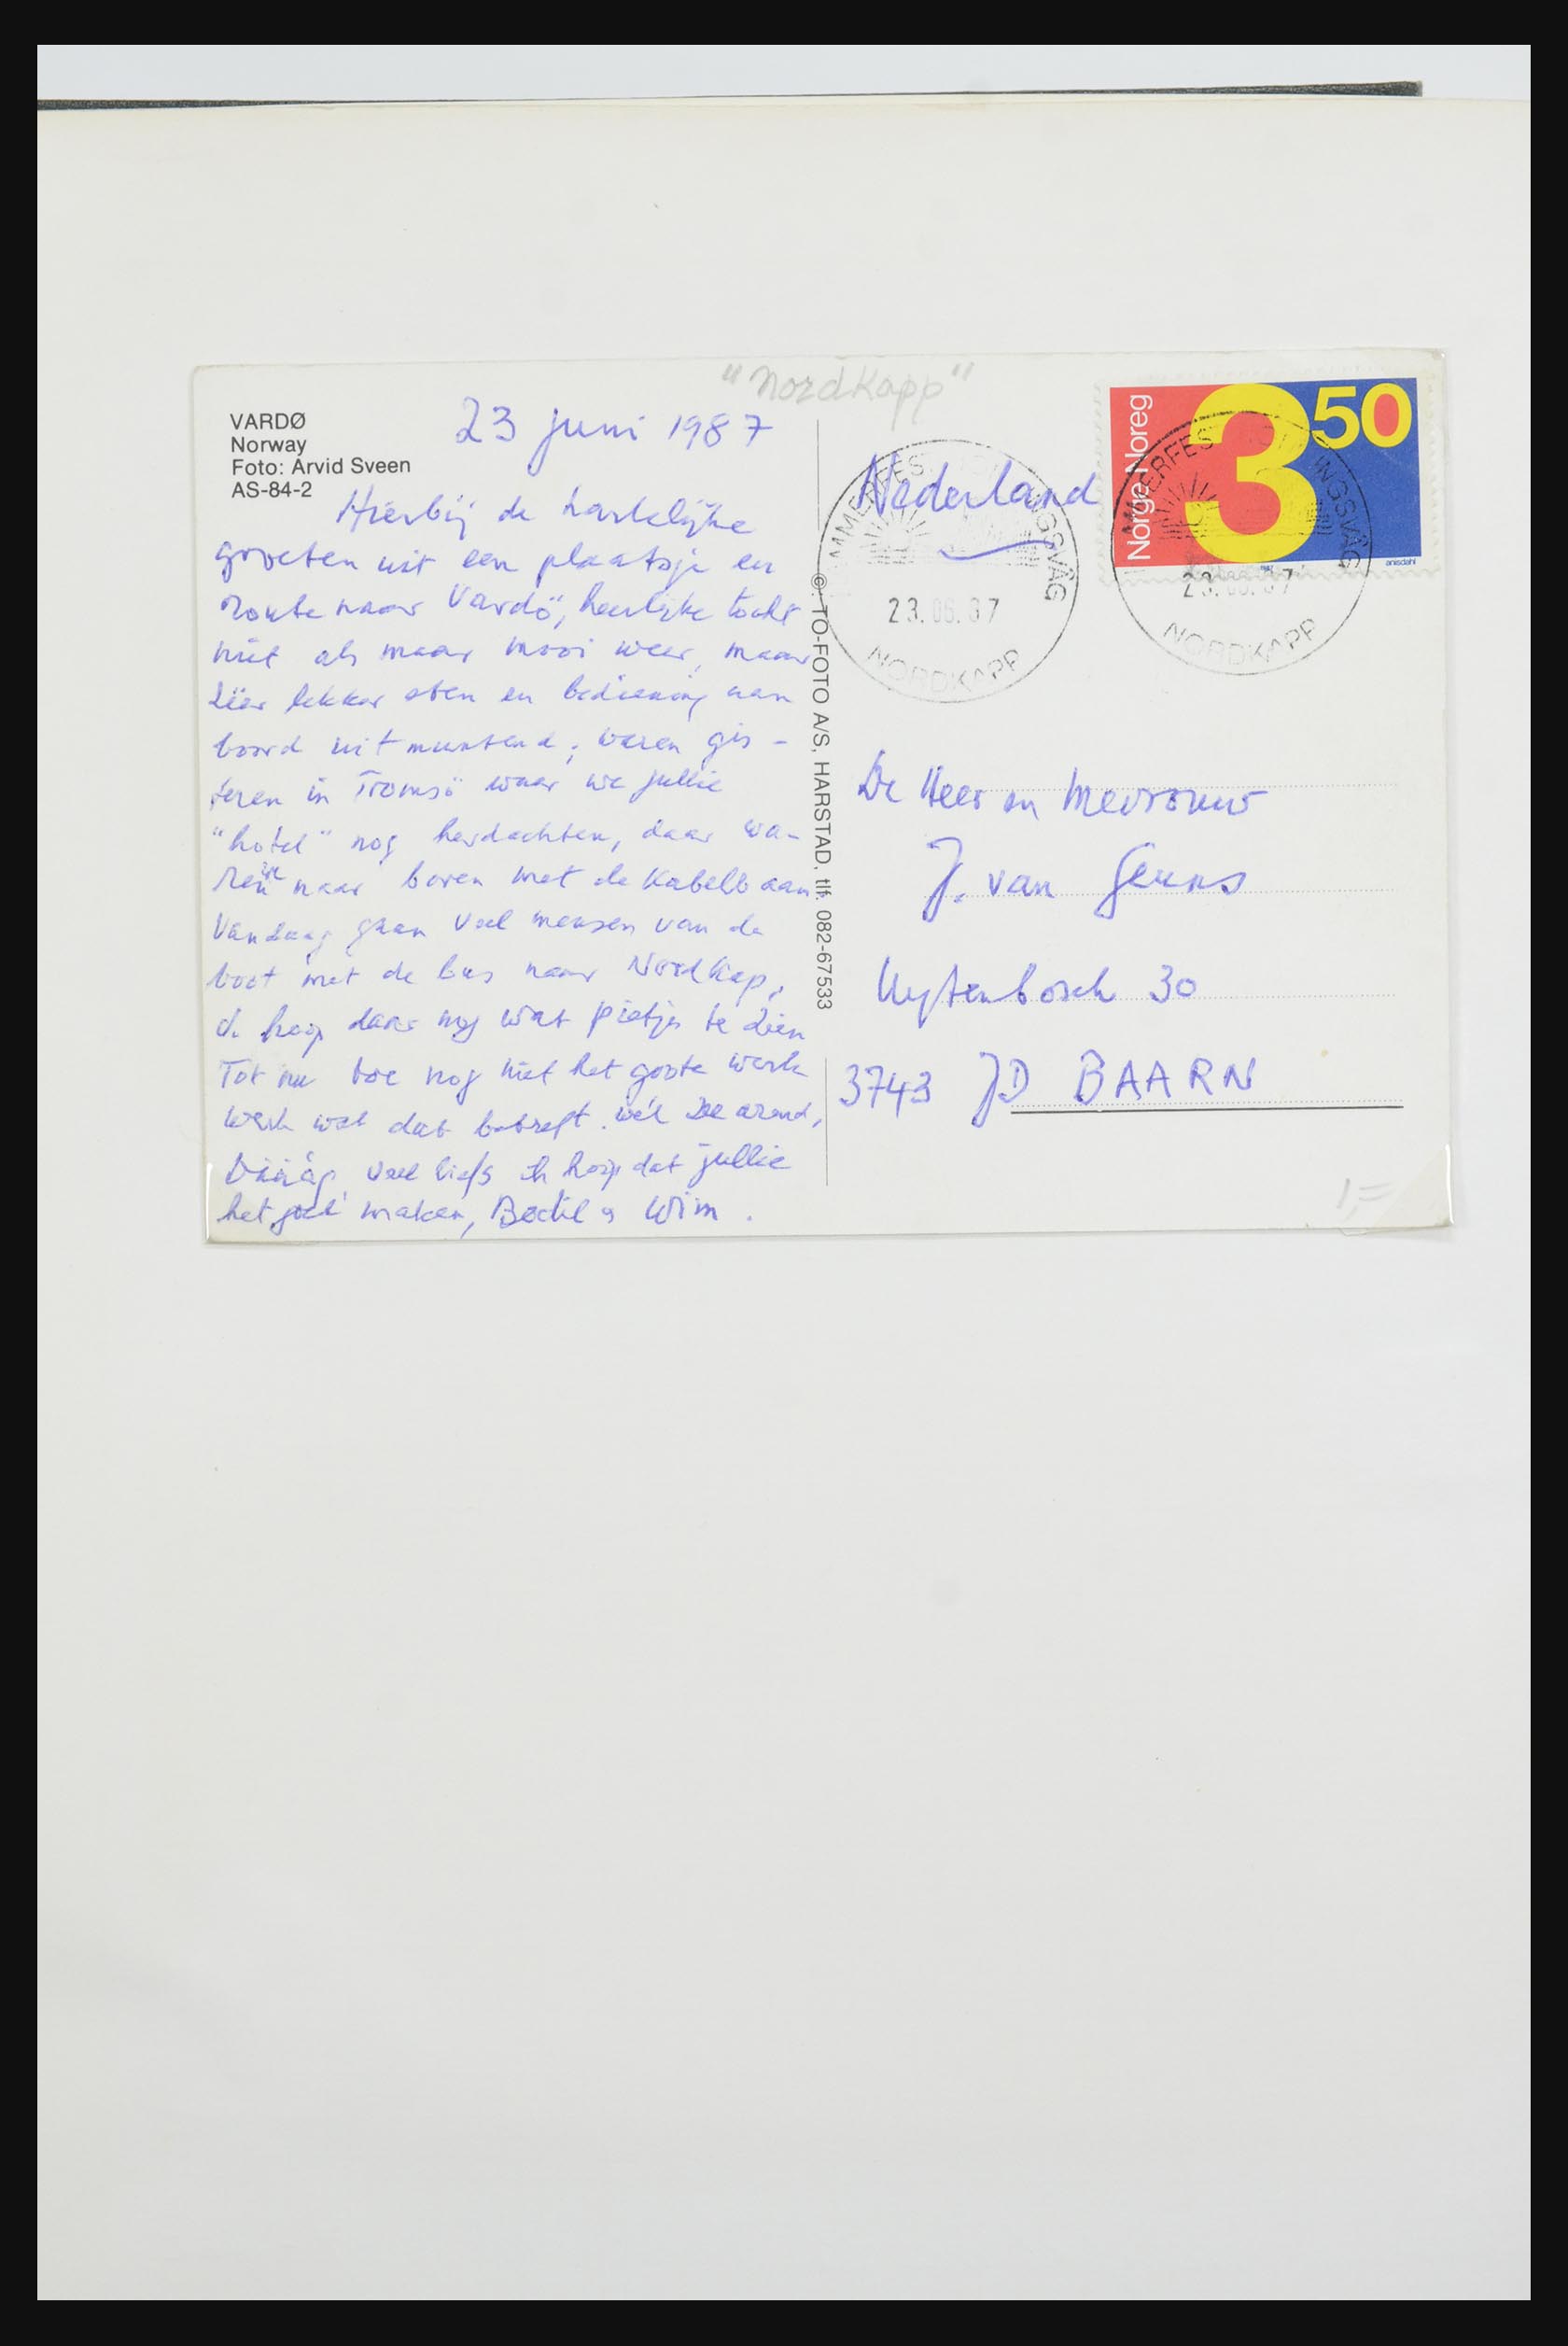 "Nordkapp"
VARDØ
Norway
Foto: Arvid Sveen
AS-84-2
23 juni 1987
Hierbij de hartelijke
groeten uit een plaatsje en
route naar Vardö, heerlijke tocht
niet als maar mooi weer, maar
zéér lekker eten en bediening aan
boord uitmuntend; waren gis-
teren in Tromsö waar we jullie
"hotel" nog herdachten, daar wa-
ren we naar boven met de Kabelbaan.
Vandaag gaan veel mensen van de
boot met de bus naar Nordkap,
ik hoop daar nog wat pietjes te zien
Tot nu toe nog niet het goote werk
werk wat dat betreft. wél zee arend,
Dááág, veel liefs ik hoop dat jullie
het goed maken, Bodil & Wim.
©: TO-FOTO A/S, HARSTAD, tlf. 082-67533
Nederland
MMERFES INGSVÅG
23.06.87
NORDKAPP
Norge Noreg
350
anisdahl
MMERFES INGSVÅG
23.06.87
NORDKAPP
De Heer en Mevrouw
J. van Geuns
Uytenbosch 30
3743 JD BAARN
1,=